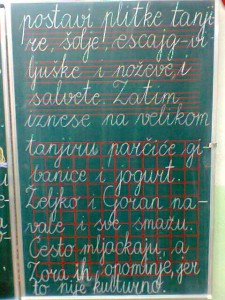 postavi plitke tanji
re, šolje, escajg-vi
ljuške i noževe, i
salvete. Zatim,
iznese na velikom
tanjiru parčiće gi-
banice i jogurt.
Željko i Goran na-
vale i sve smažu.
Često mljackaju, a
Zora ih opominje, jer
to nije kulturno.